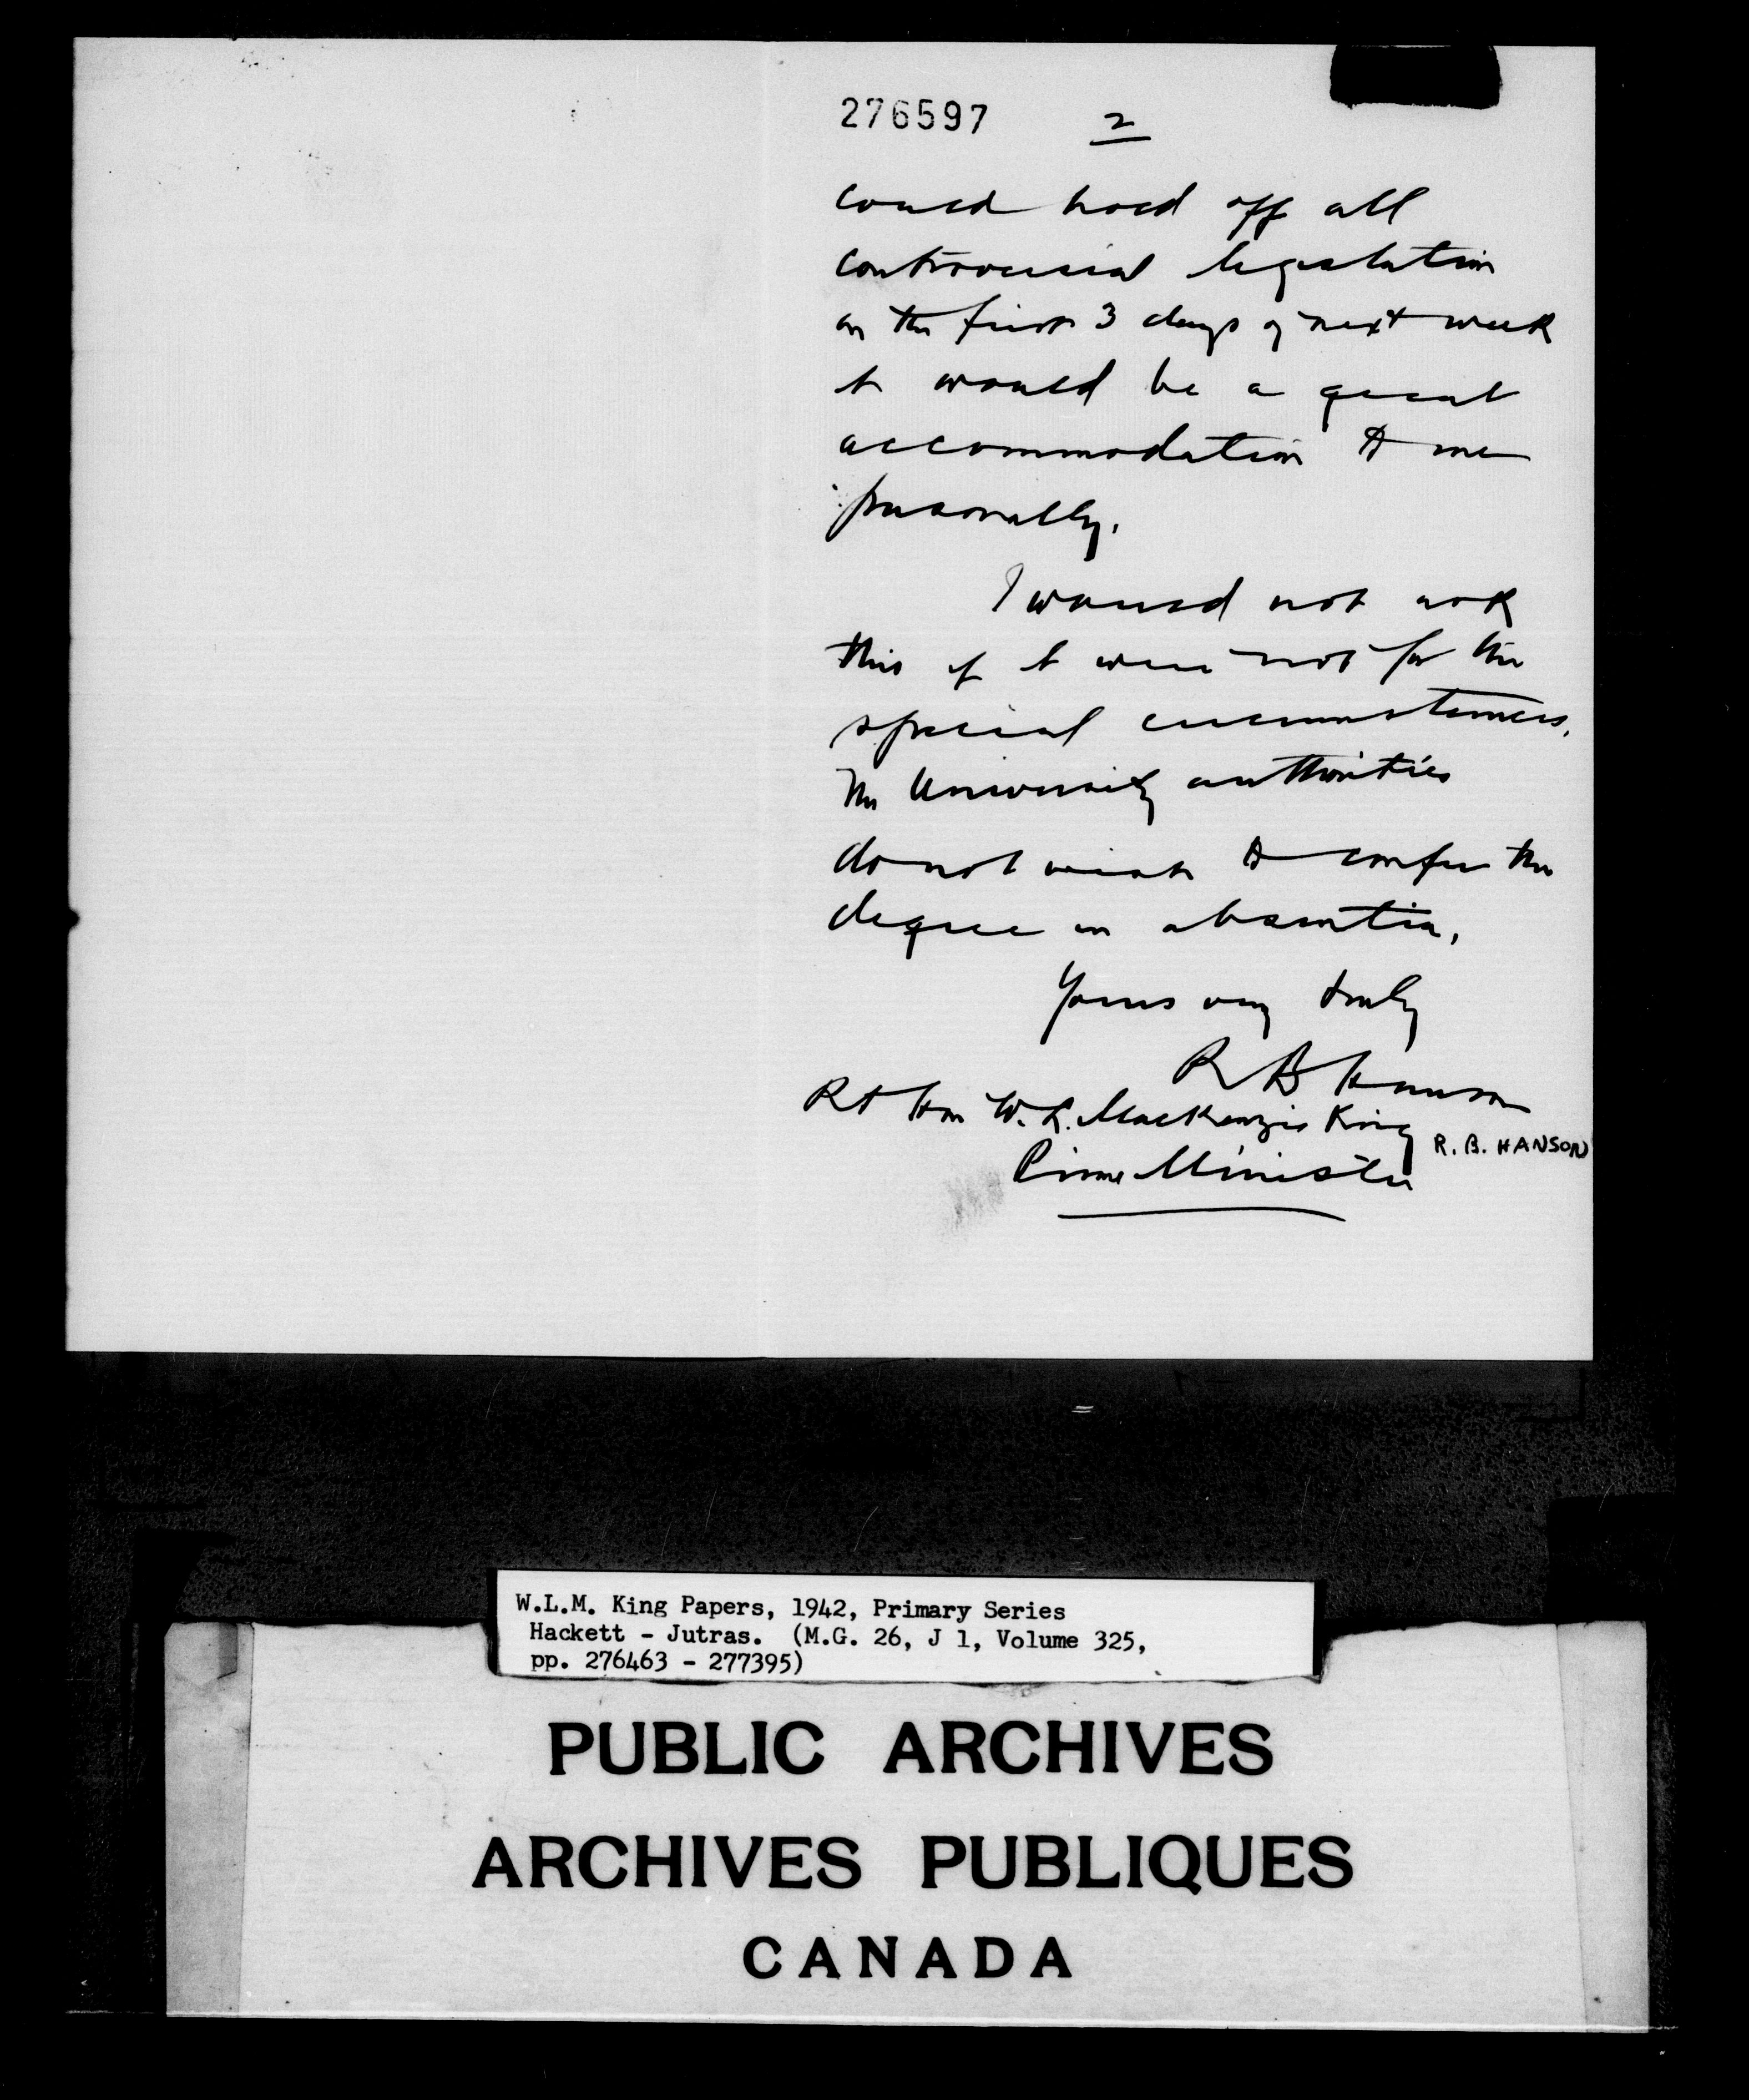 276597 2
could hold off all
controversial legislation
on the first 3 days of next week
it would be a great
accommodation to me
personally.
I would not ask
this if it were not for the
special circumstances.
The University authorities
do not wish to confer the
degree in absentia.
Yours very truly
R B Hanson
Rt Hon W. L. MacKenzie King
R. B. HANSON
Prime Minister
W.L.M. King Papers, 1942, Primary Series
Hackett - Jutras. (M.G. 26, J 1, Volume 325,
pp. 276463 - 277395)
PUBLIC ARCHIVES
ARCHIVES PUBLIQUES
CANADA